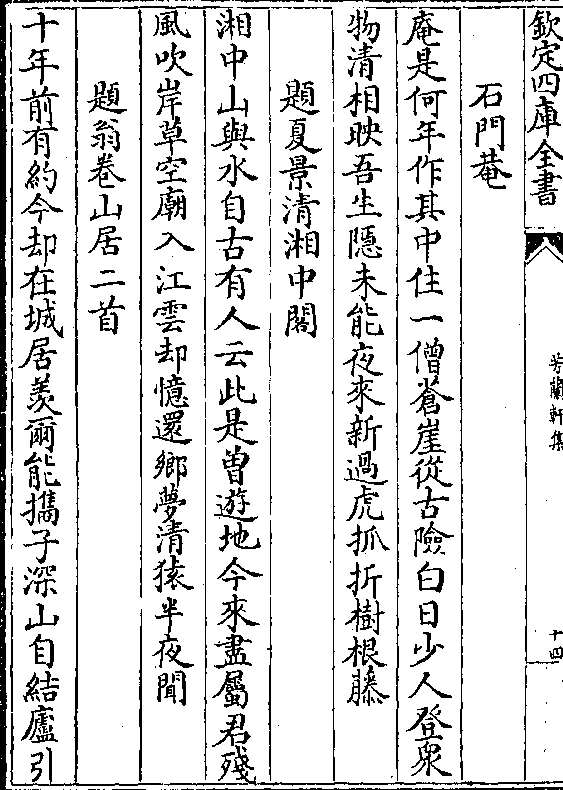 欽定四庫全書
芳蘭軒集
十四
石門菴
庵是何年作其中住一僧蒼崖從古險白日少人登衆
物清相映吾生隱未能夜來新過虎抓折樹根藤
題夏景清湘中閣
湘中山與水自古有人云此是曽遊地今來盡屬君殘
風吹岸草空廟入江雲却憶還鄉夢清猿半夜聞
題翁卷山居二首
十年前有約今却在城居羨爾能攜子深山自結廬引